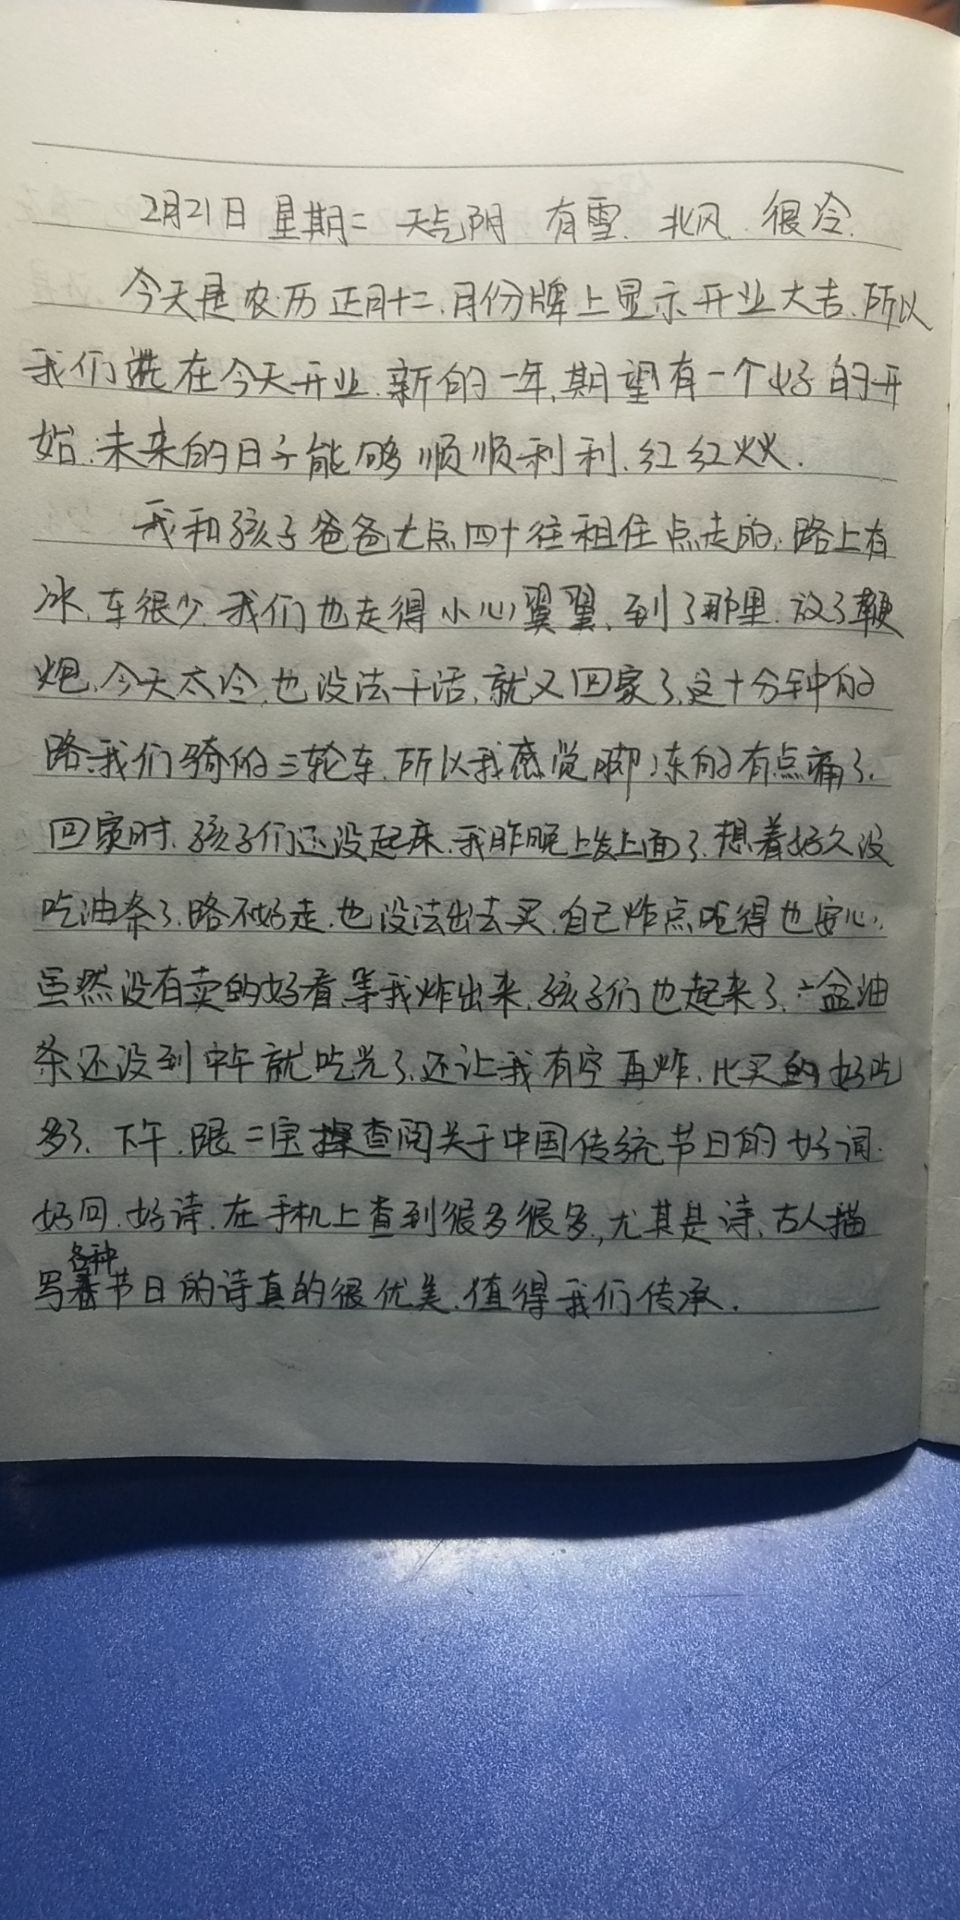 2月21日 星期二 天气阴 有雪. 北风. 很冷.
今天是农历正月十二.月份牌上显示开业大吉.所以
我们选在今天开业.新的一年,期望有一个好的开
始.未来的日子能够顺顺利利.红红火火.
我和孩子爸爸七点四十往租住点走的.路上有
冰.车很少.我们也走得小心翼翼.到了那里.放了鞭
炮.今天太冷.也没法干活.就又回家了.这十分钟的
路.我们骑的三轮车.所以我感觉脚冻的有点痛了.
回家时.孩子们还没起来.我昨晚上发上面了.想着好久没
吃油条了.路不好走.也没法出去买.自己炸点吃得也安心.
虽然没有卖的好看.等我炸出来.孩子们也起来了.一盆油
条还没到中午就吃光了.还让我有空再炸.比买的好吃
多了.下午.跟二宝查阅关于中国传统节日的好词.
好句.好诗.在手机上查到很多很多,尤其是诗.古人描
写各种节日的诗真的很优美.值得我们传承.